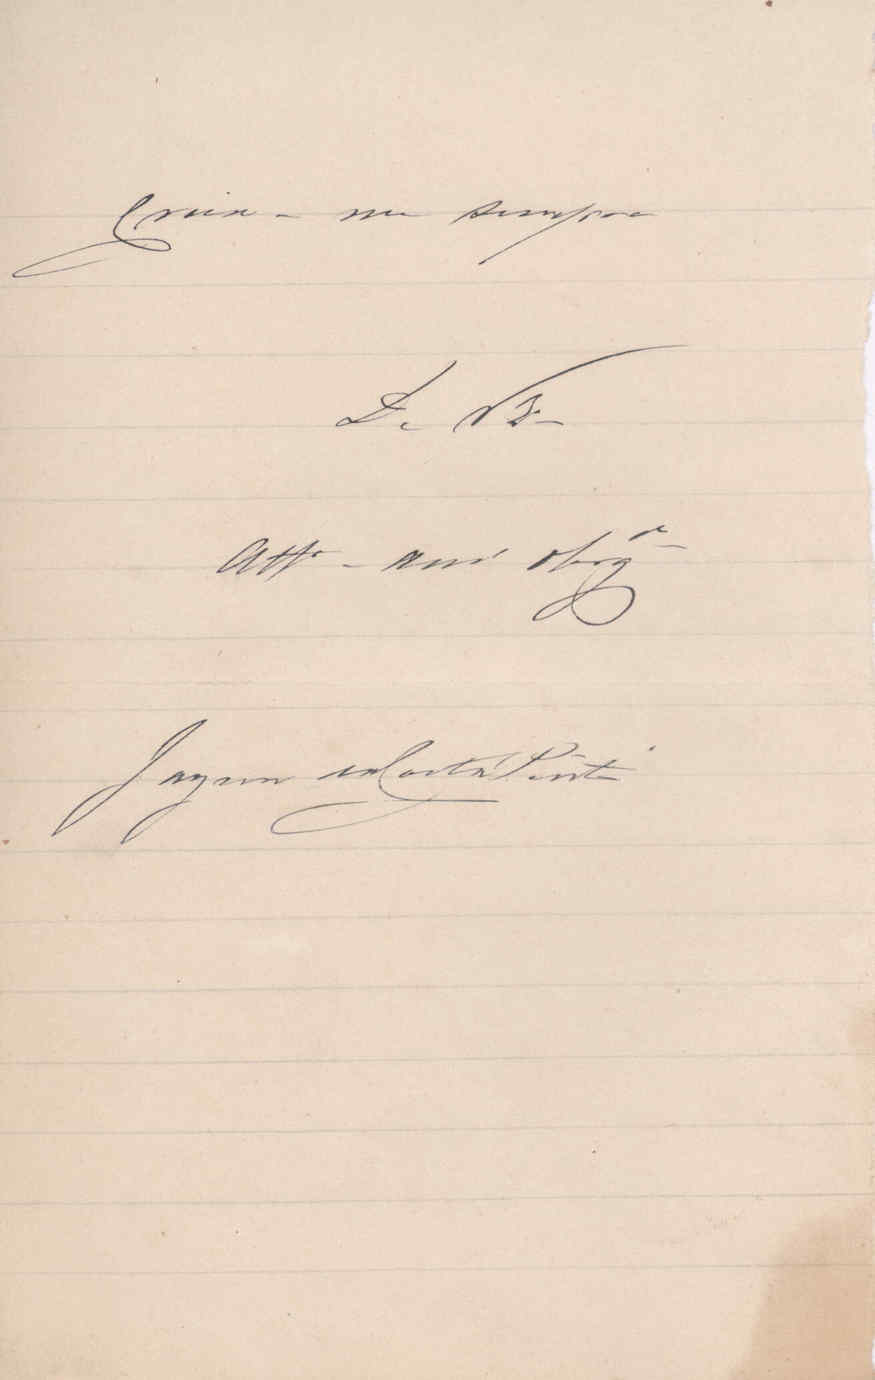 Creia-me sempre
De V. S.
Att.º am.º obrg.º
Jayme da Costa Pinto